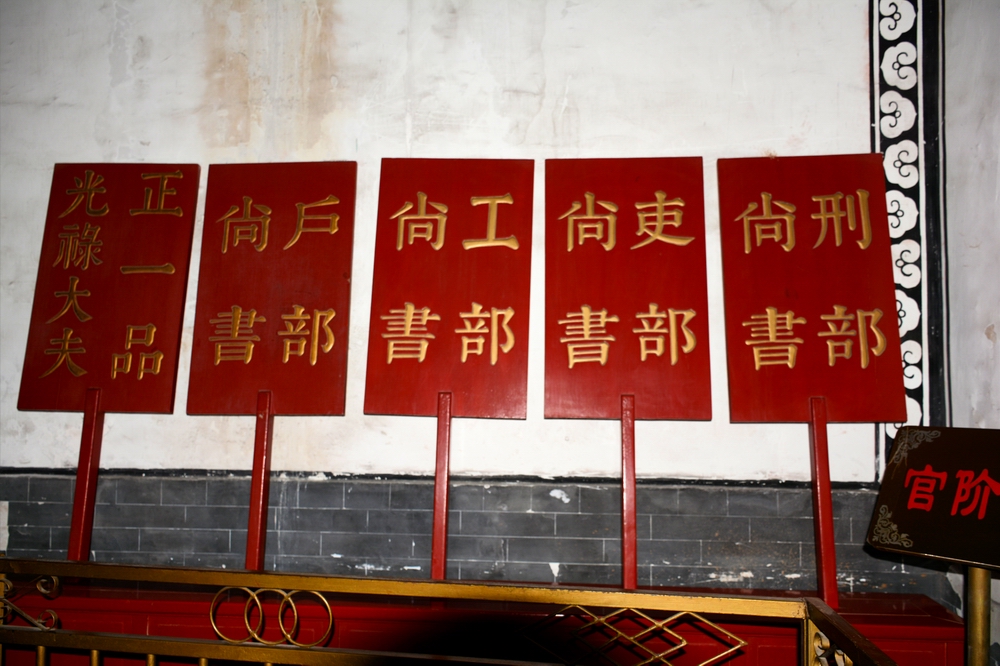 刑部
尚書
吏部
尚書
工部
尚書
戶部
尚書
正一品
光祿大夫
官阶